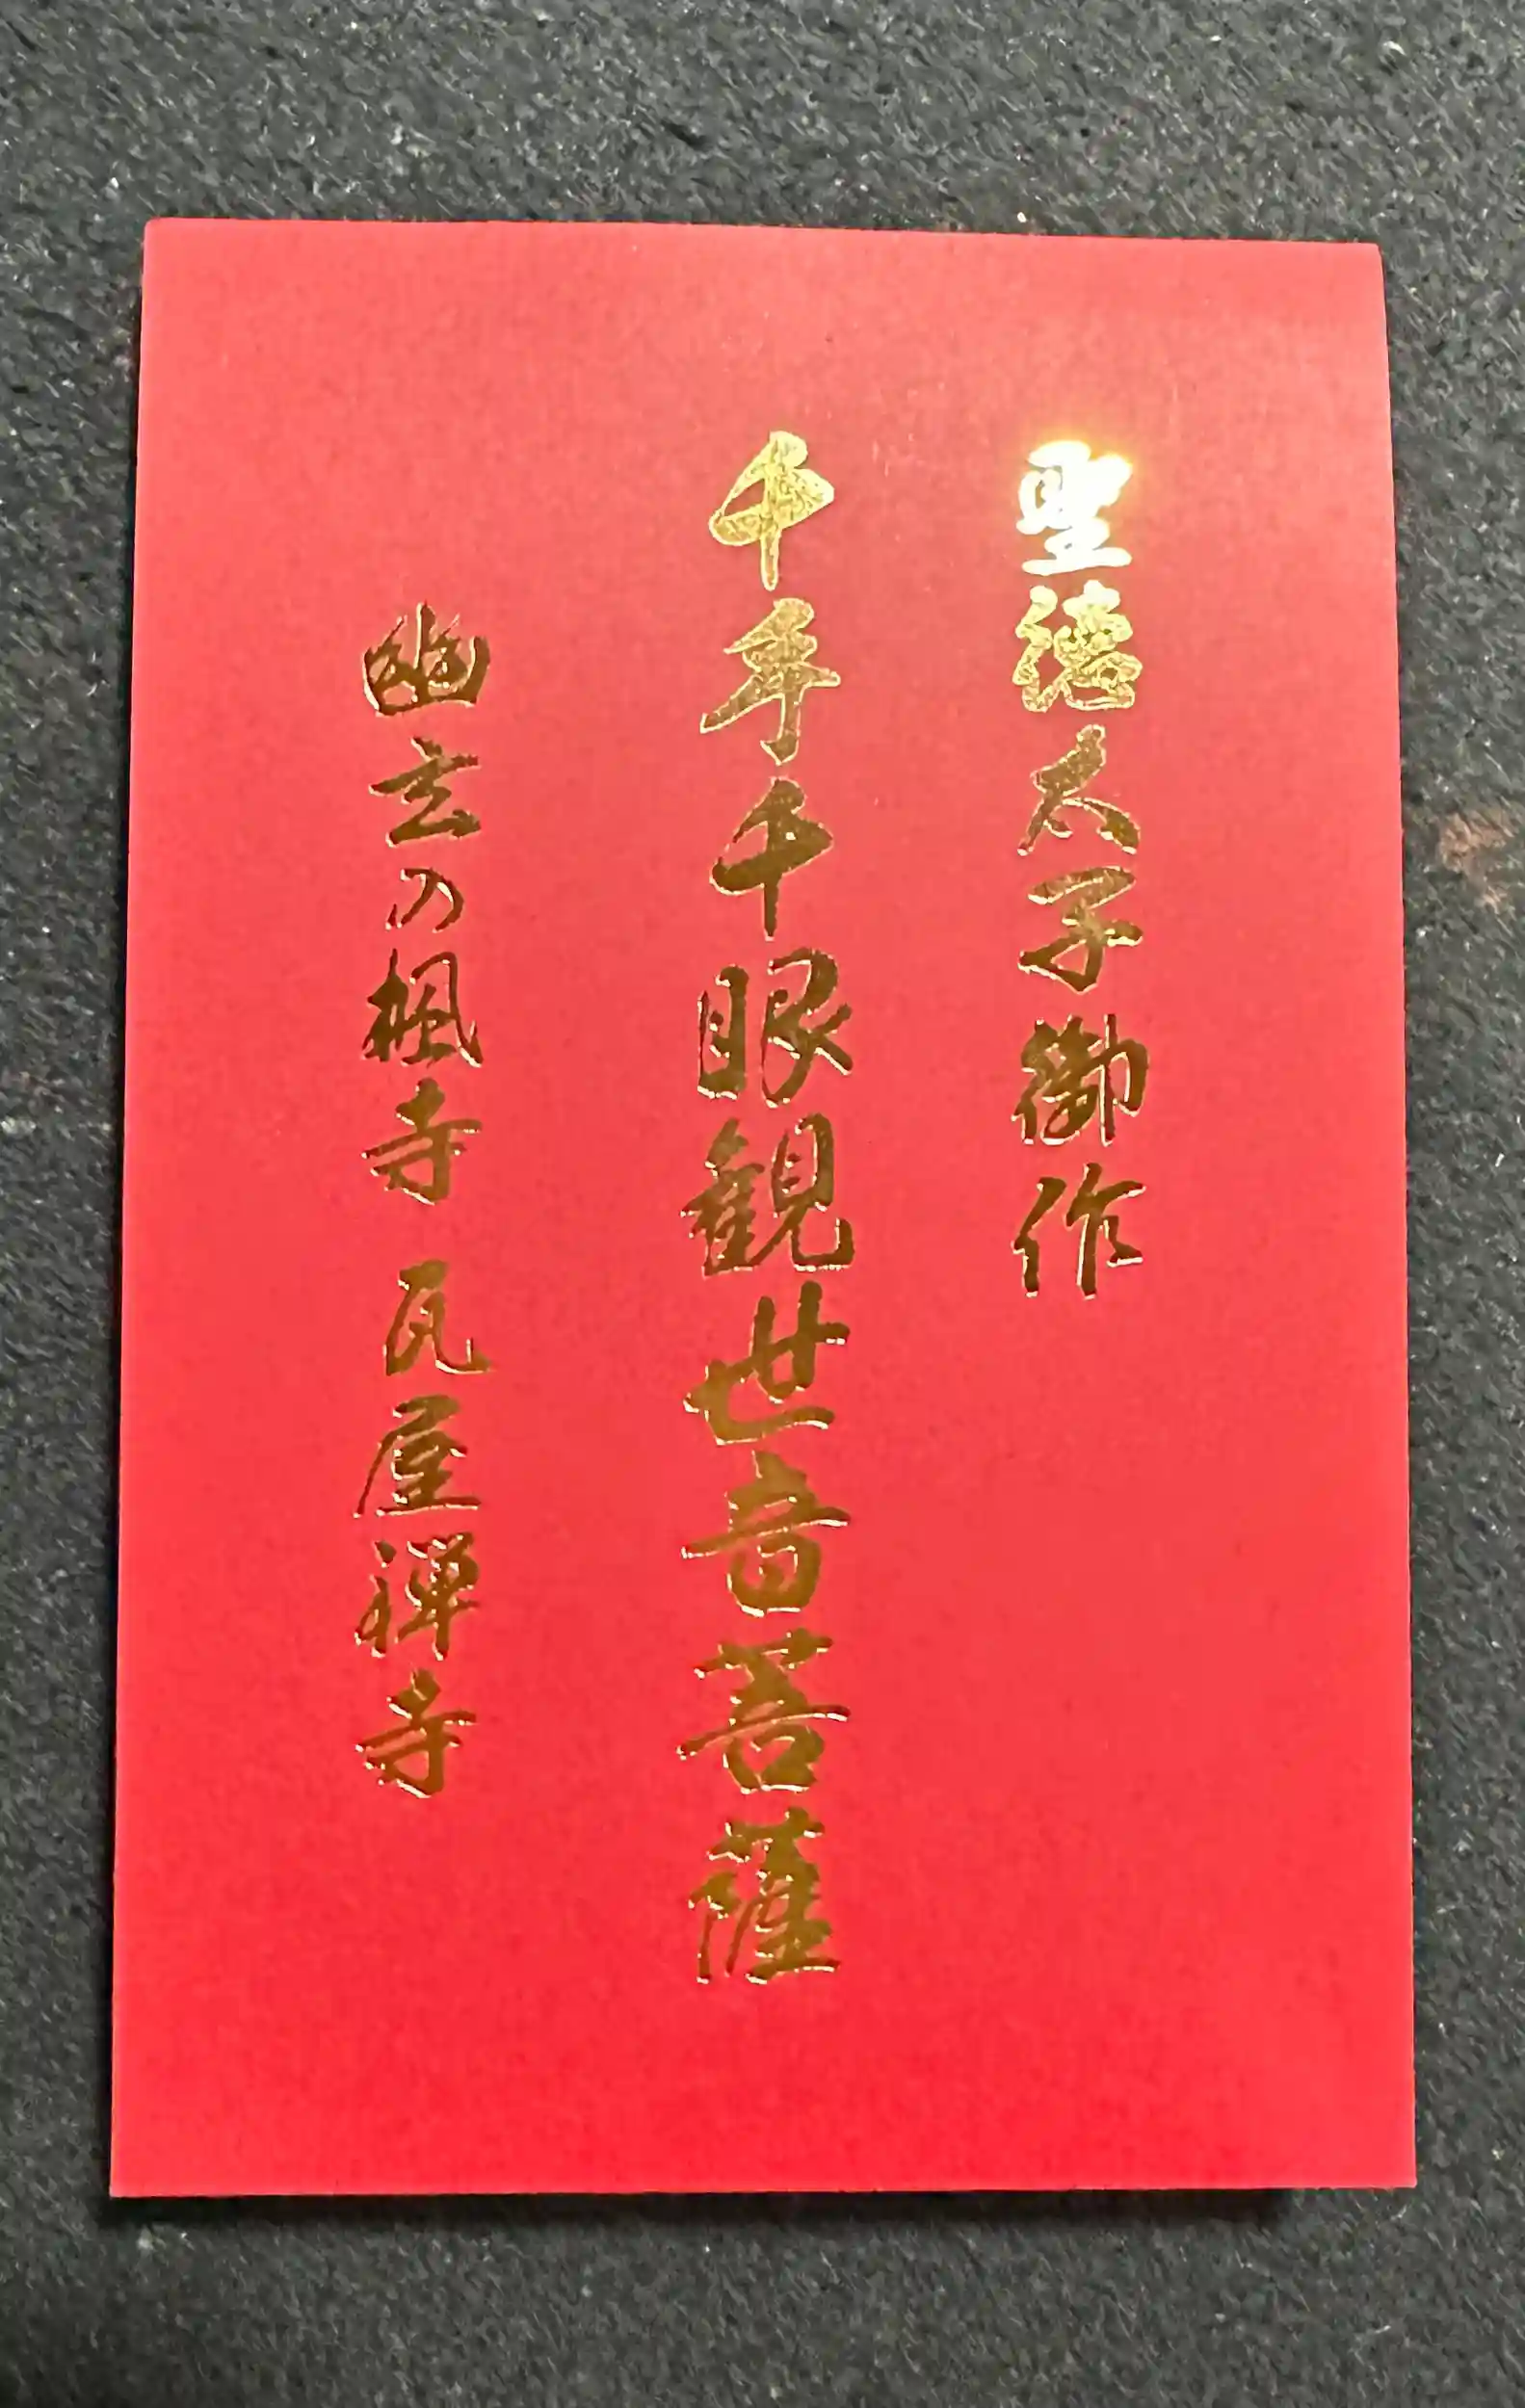 聖徳太子御作
千手千眼観世音菩薩
幽玄の楓寺 瓦屋禅寺